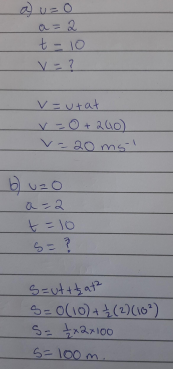 a) u = 0
a = 2
t = 10
v = ?
v = u + at
v = 0 + 2(10)
v = 20 ms⁻¹
b) u = 0
a = 2
t = 10
s = ?
s = ut + ½at²
s = 0(10) + ½(2)(10²)
s = ½ × 2 × 100
s = 100 m.